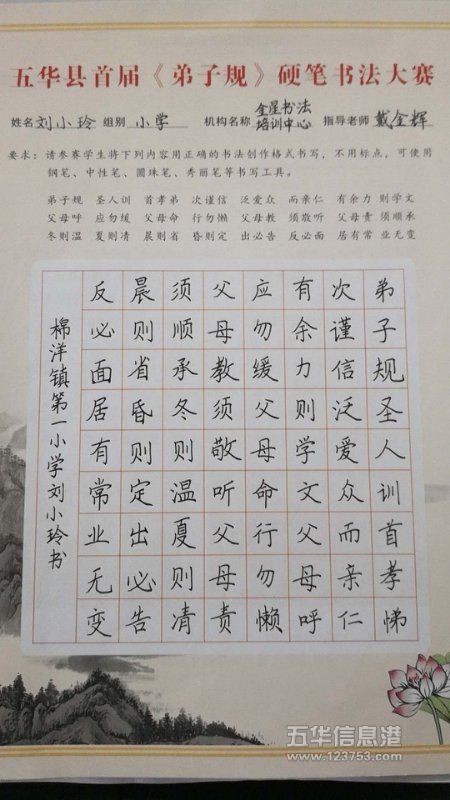 五华县首届《弟子规》硬笔书法大赛
姓名 刘小玲 组别 小学 机构名称 金星书法培训中心 指导老师 戴金辉
要求：请参赛学生将下列内容用正确的书法创作格式书写，不用标点，可使用
钢笔、中性笔、圆珠笔、秀丽笔等书写工具。
弟子规 圣人训 首孝弟 次谨信 泛爱众 而亲仁 有余力 则学文
父母呼 应勿缓 父母命 行勿懒 父母教 须敬听 父母责 须顺承
冬则温 夏则清 晨则省 昏则定 出必告 反必面 居有常 业无变
弟子规圣人训首孝悌
次谨信泛爱众而亲仁
有余力则学文父母呼
应勿缓父母命行勿懒
父母教须敬听父母责
须顺承冬则温夏则凊
晨则省昏则定出必告
反必面居有常业无变
棉洋镇第一小学刘小玲书
五华信息港
www.123753.com